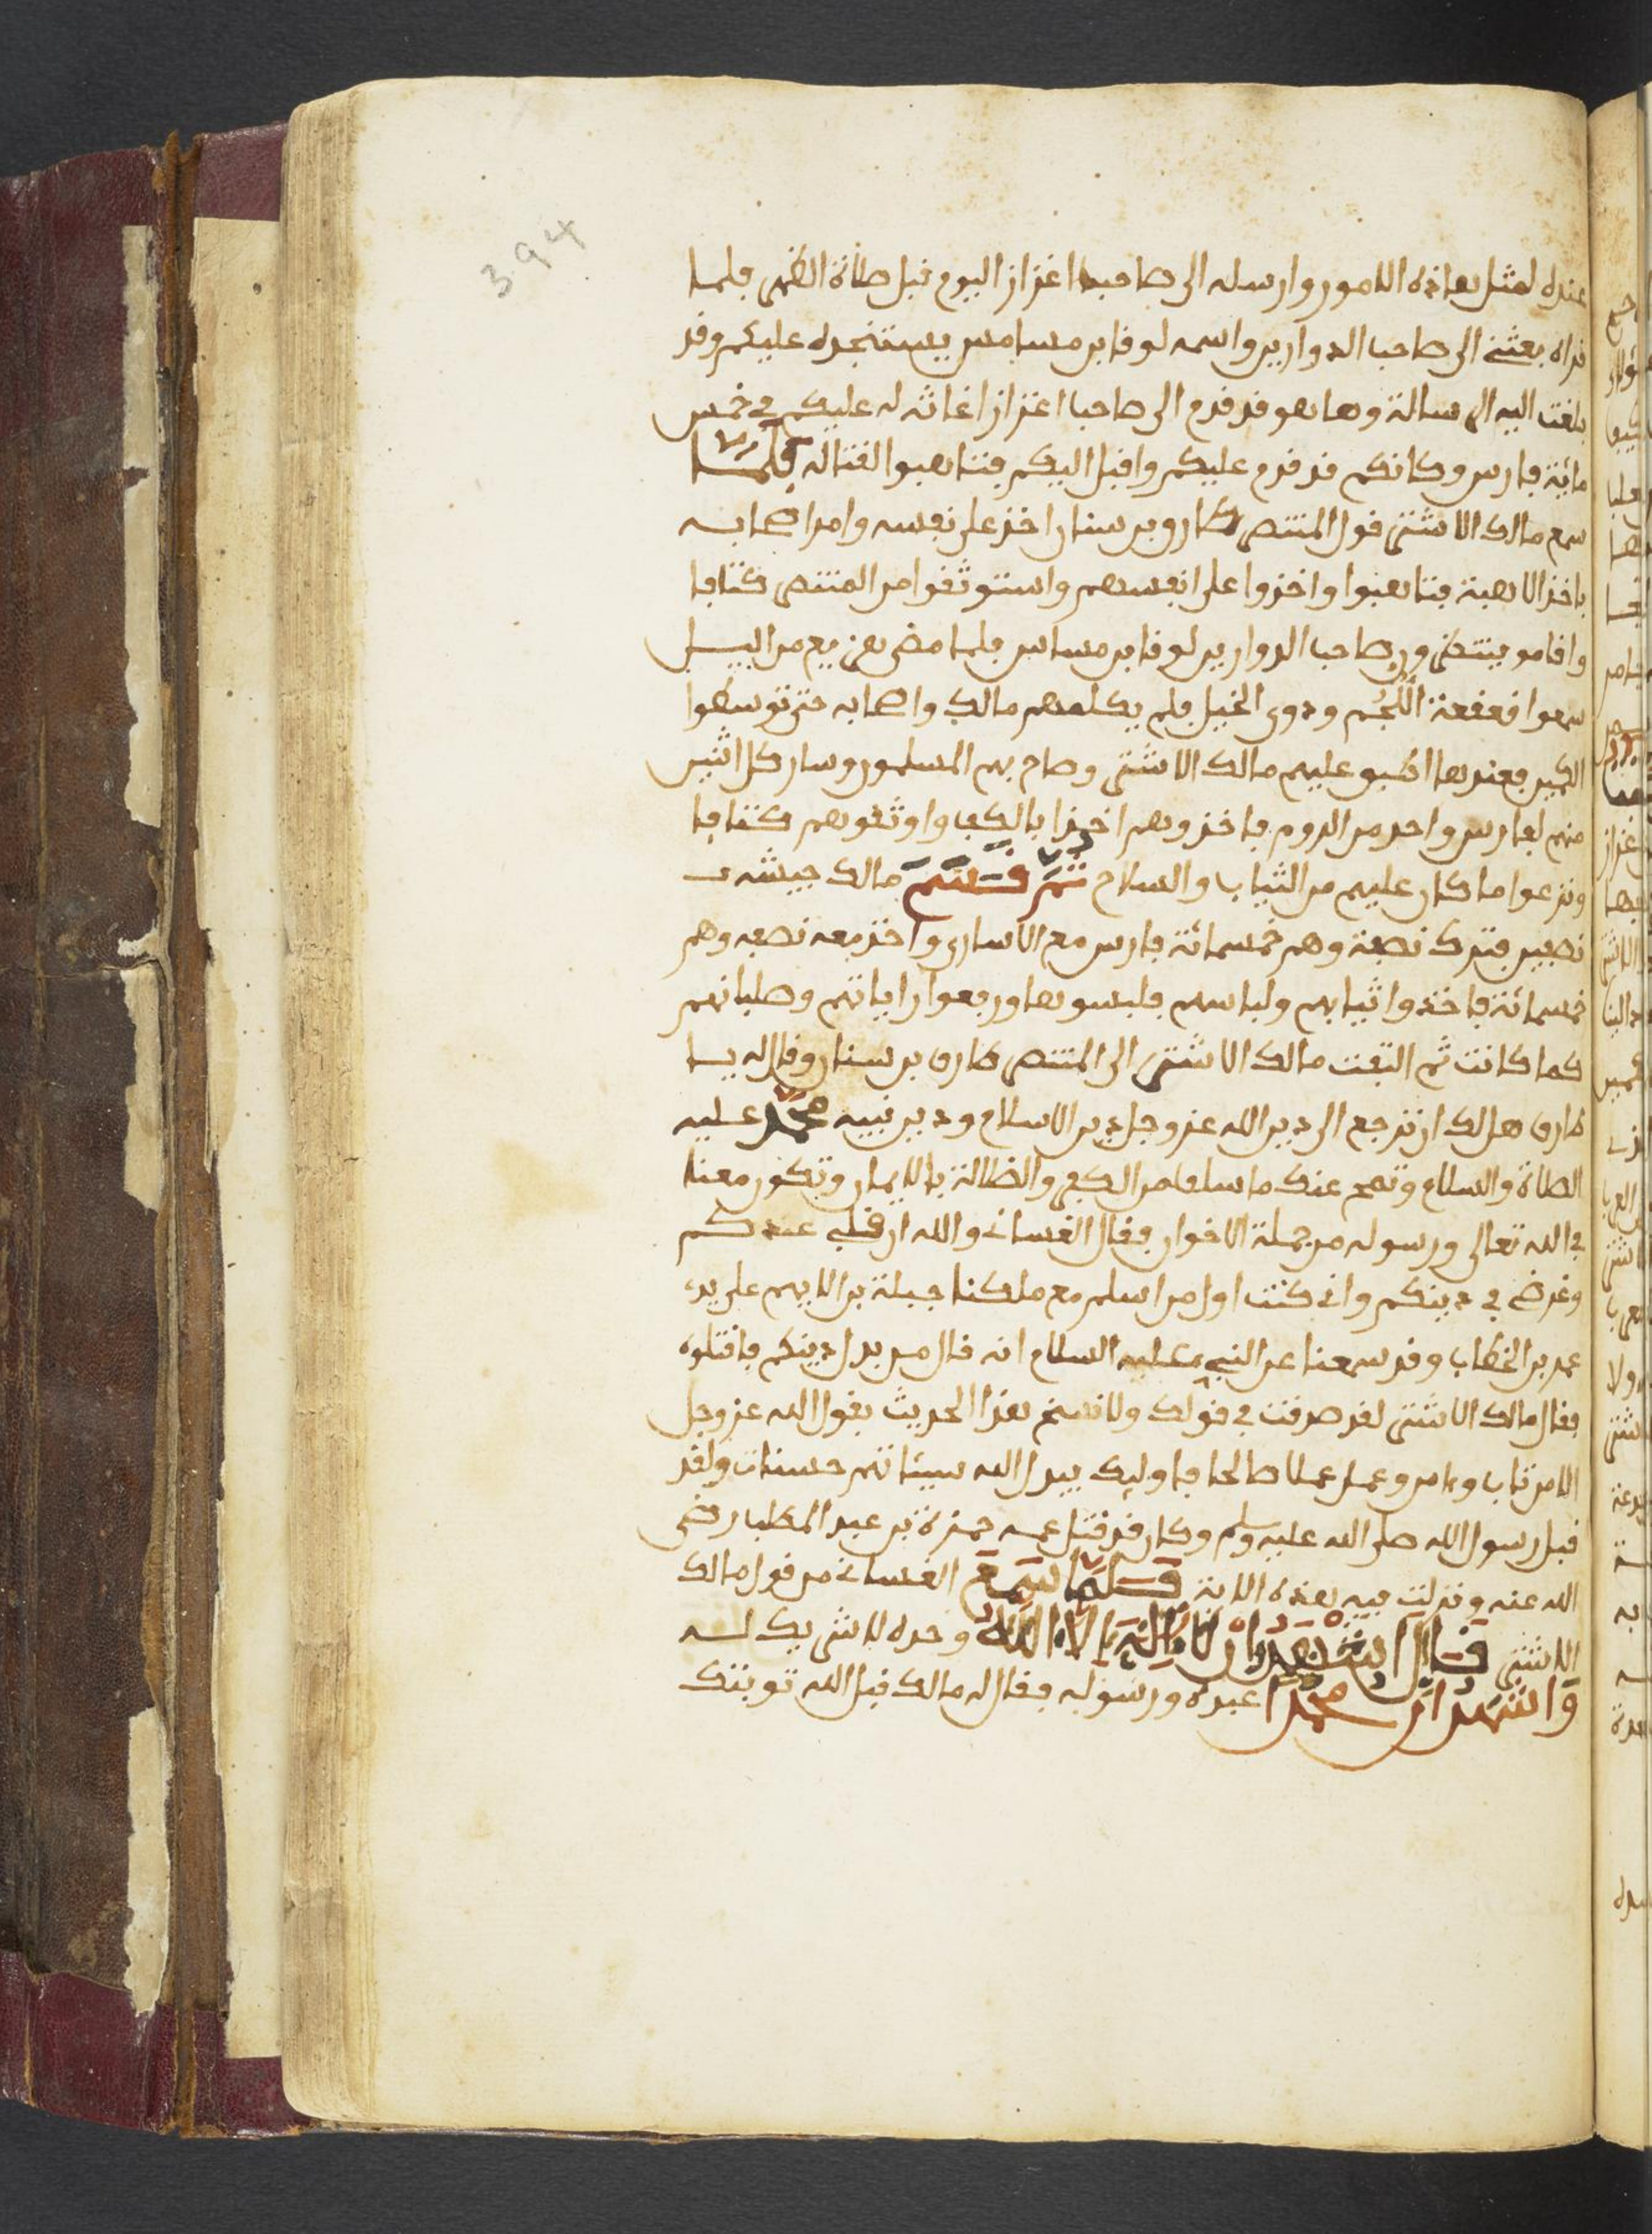 394
عنده لمثل هاذه الامور وارسله الى صاحب اعزاز اليوم قبل صلاة الظهر فلما
قراه بعثني الى صاحب الدوارين واسمه لوقا بن مسامس يستنجده عليكم وقد
بلغت اليه الرسالة وها هو قد قدم الى صاحب اعزاز اغاثه له عليكم في خمس
مائة فارس وكانكم قد قدم عليكم واقبل اليكم فتاهبوا لقتاله فلما
سمع مالك الاشتر قول المتنصر طارق بن سنان اخذ على نفسه وامر اصحابه
باخذ الاهبة فتاهبوا واخذوا على انفسهم واستوثقوا من المتنصر كتافا
واقامو ينتظرون صاحب الدوارين لوقا بن مسامس فلما مضى هزيع من اليل
سمعوا قعقعة اللُّجُم ودوي الخيل فلم يكلمهم مالك واصحابه حتى توسطوا
الكمين فعندها اطبو عليهم مالك الاشتر وصاح بهم المسلمون وسار كل اثنين
منهم لفارس واحد من الروم فاخذوهم اخذا بالكف واوثقوهم كتافا
ونزعوا ما كان عليهم من الثياب والسلاح ثم قسم مالك جيشه
نصفين فترك نصفه وهم خمسمائة فارس مع الاسارى واخذ معه نصفه وهم
خمسمائة فاخذوا ثيابهم ولباسهم فلبسوها ورفعوا راياتهم وصلبانهم
كما كانت ثم التفت مالك الاشتر الى المتنصر طارق بن سنان وقال له يا
طارق هل لك ان ترجع الى دين الله عز وجل دين الاسلام ودين نبيه محمد عليه
الصلاة والسلام وتمح عنك ما سلف من الكفر والضلالة بالايمان وتكون معنا
في الله تعالى ورسوله من جملة الاخوان فقال الغساني والله ان قلبي عندكم
وغرضي في دينكم واني كنت اول من اسلم مع ملكنا جبلة بن الايهم على يد
عمر بن الخطاب وقد سمعنا عن النبي عليه السلام انه قال من بدل دينكم فاقتلوه
فقال مالك الاشتر لقد صدقت في قولك ولانسخ هذا الحديث بقول الله عز وجل
الا من تاب وءامن وعمل عملا صالحا فاوليك يبدل الله سيئاتهم حسنات ولقد
قبل رسول الله صلى الله عليه وسلم وكان قد قتل عمه حمزة بن عبد المطلب رضي
الله عنه ونزلت فيه هذه الاية فلما سمع الغساني من قول مالك
الاشتر قال اشهد ان لا اله الا الله وحده لا شريك له
واشهد ان محمدا عبده ورسوله فقال له مالك قبل الله توبتك